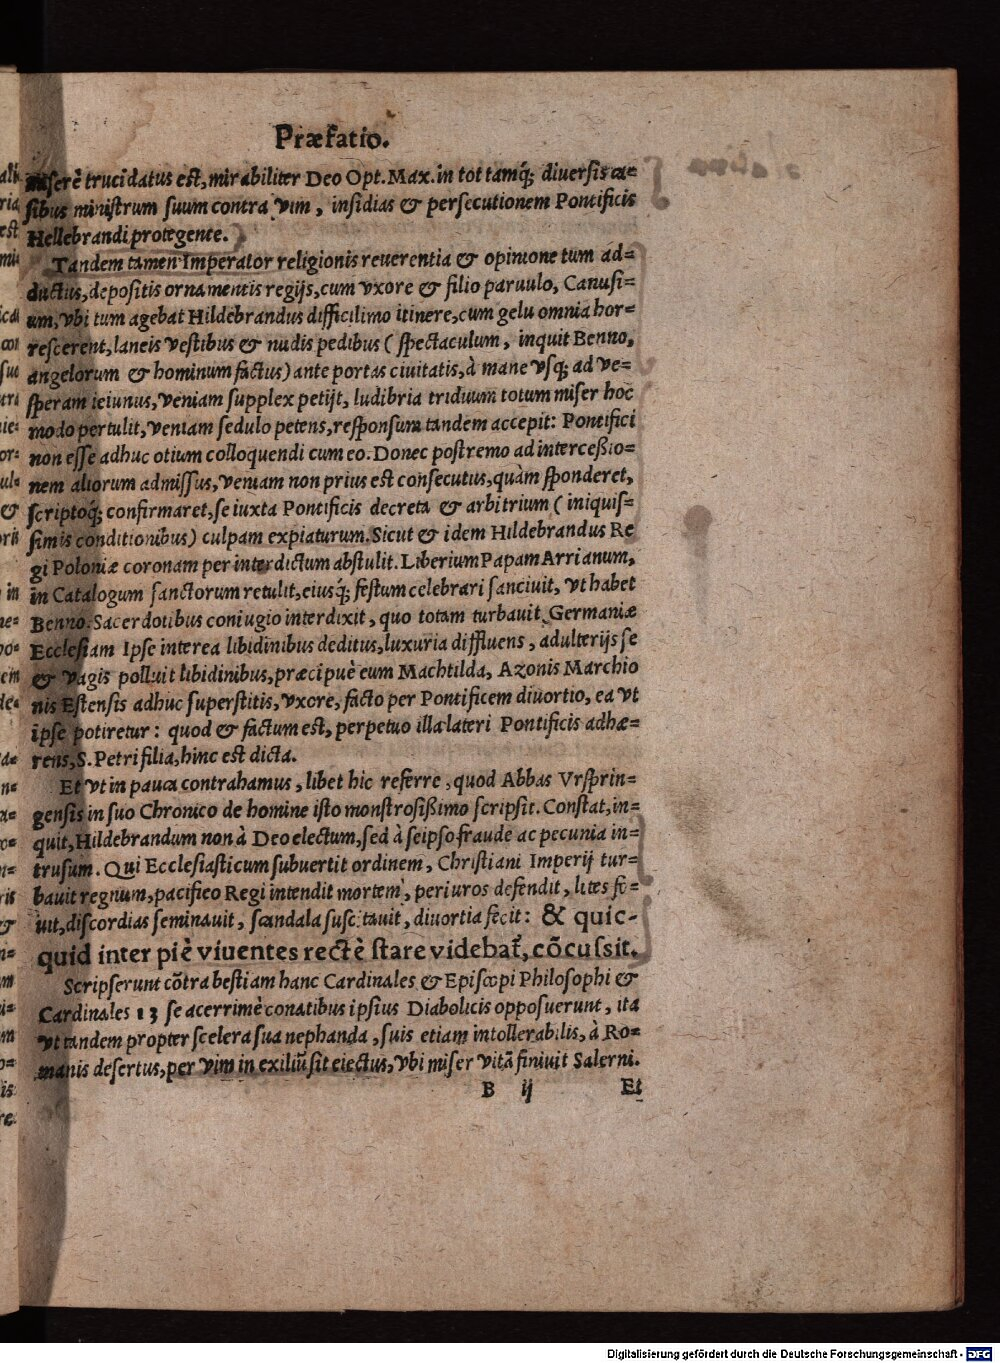 Præfatio.
miserè trucidatus est, mirabiliter Deo Opt. Max. in tot tamq́; diversis ca=
sibus ministrum suum contra vim, insidias & persecutionem Pontificis
Hellebrandi protegente.
Tandem tamen Imperator religionis reuerentia & opinione tum ad=
ductus, depositis ornamentis regijs, cum vxore & filio paruulo, Canusi=
um, vbi tum agebat Hildebrandus difficilimo itinere, cum gelu omnia hor=
rescerent, laneis vestibus & nudis pedibus ( spectaculum, inquit Benno,
angelorum & hominum factus) ante portas ciuitatis, à mane vsq; ad ve=
speram ieiunus, veniam supplex petijt, ludibria triduum totum miser hoc
modo pertulit, veniam sedulo petens, responsum tandem accepit: Pontifici
non esse adhuc otium colloquendi cum eo. Donec postremo ad intercessio=
nem aliorum admissus, veniam non prius est consecutus, quàm sponderet,
scriptoq́; confirmaret, se iuxta Pontificis decreta & arbitrium ( iniquis=
simis conditionibus) culpam expiaturum. Sicut & idem Hildebrandus Re
gi Poloniæ coronam per interdictum abstulit. Liberium Papam Arrianum,
in Catalogum sanctorum retulit, eiusq́; festum celebrari sanciuit, vt habet
Benno. Sacerdotibus coniugio interdixit, quo totam turbauit Germaniæ
Ecclesiam Ipse interea libidinibus deditus, luxuria diffluens, adulterijs se
& vagis polluit libidinibus, præcipuè eum Machtilda, Azonis Marchio
nis Estensis adhuc superstitis, vxore, facto per Pontificem diuortio, ea vt
ipse potiretur: quod & factum est, perpetuo illa lateri Pontificis adhæ=
rens, S. Petri filia, hinc est dicta.
Et vt in pauca contrahamus, libet hic referre, quod Abbas Vrsprin=
gensis in suo Chronico de homine isto monstrosissimo scripsit. Constat, in=
quit, Hildebrandum non à Deo electum, sed à seipso fraude ac pecunia in=
trusum. Qui Ecclesiasticum subuertit ordinem, Christiani Imperij tur=
bauit regnum, pacifico Regi intendit mortem, periuros defendit, lites fo=
uit, discordias seminauit, scandala suscitauit, diuortia fecit: & quic-
quid inter piè viuentes rectè stare videbat̃, cõcussit.
Scripserunt cõtra bestiam hanc Cardinales & Episcopi Philosophi &
Cardinales 13 se acerrimè conatibus ipsius Diabolicis opposuerunt, ita
vt tandem propter scelera sua nephanda, suis etiam intollerabilis, à Ro=
manis desertus, per vim in exiliũ sit eiectus, vbi miser vitã finiuit Salerni.
B ij Et
Digitalisierung gefördert durch die Deutsche Forschungsgemeinschaft - DFG